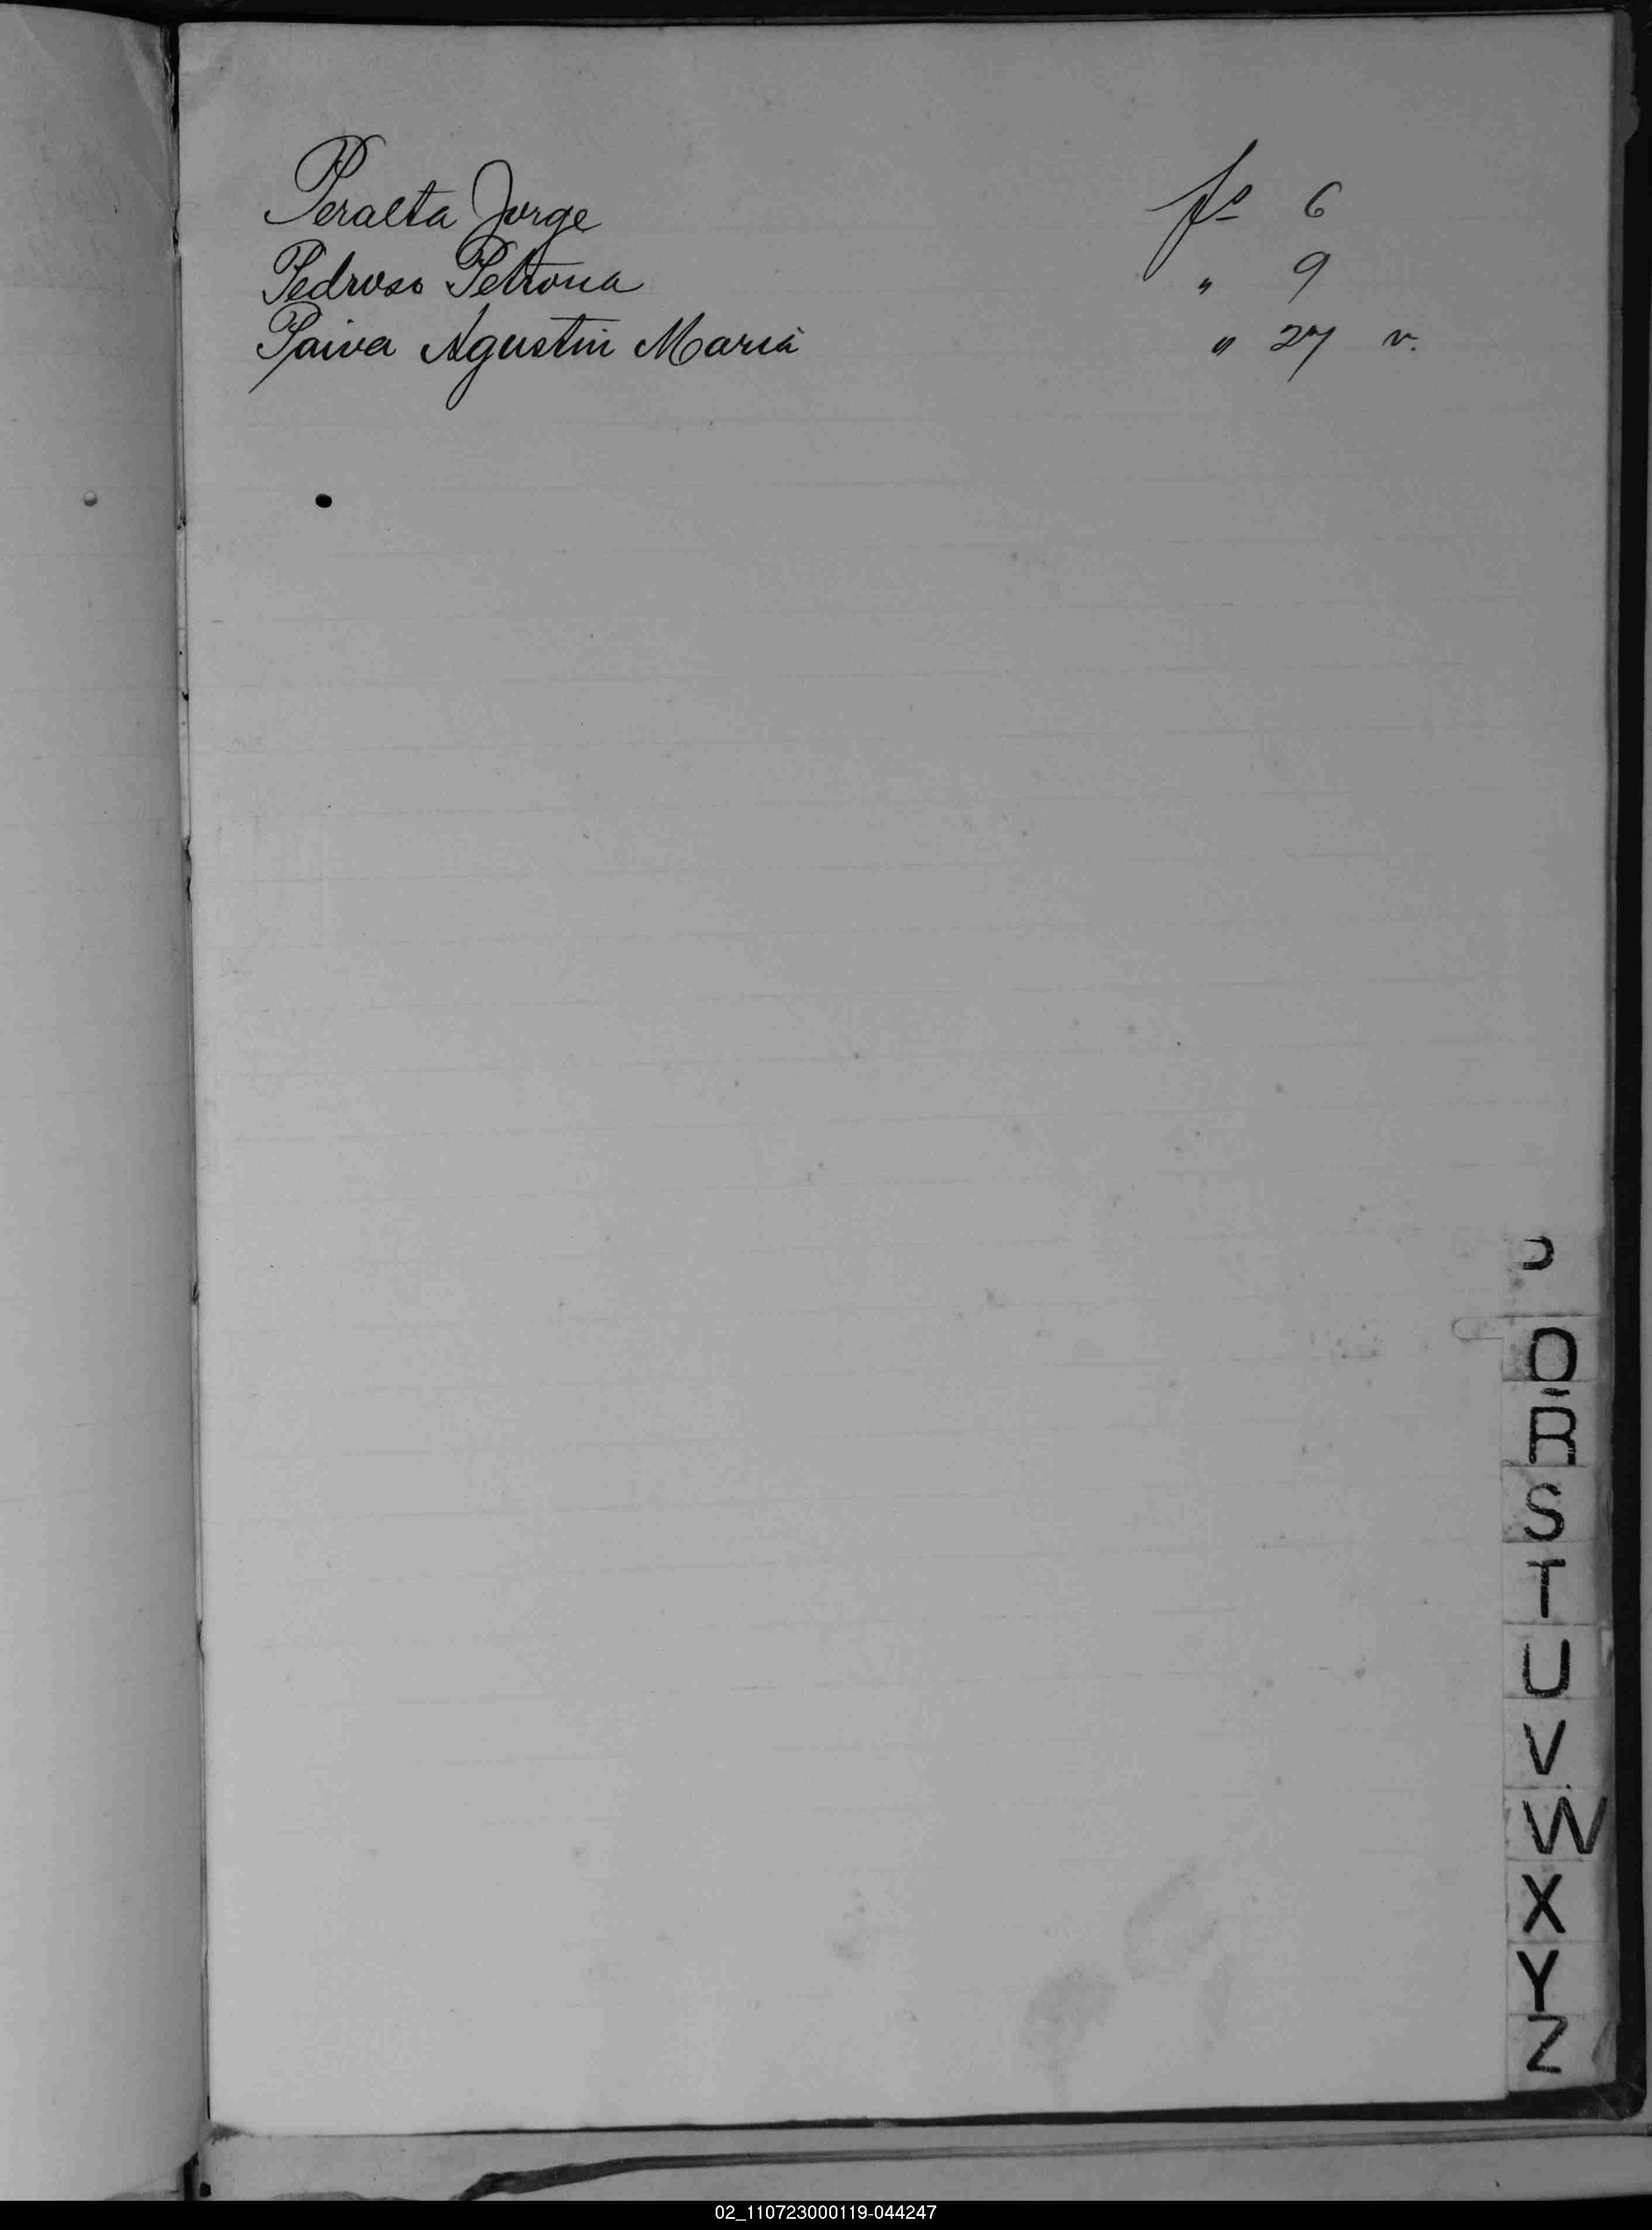 Peralta Jorge fº 6
Pedroso Petrona " 9
Paiva Agustin Maria " 27 v.
P
Q
R
S
T
U
V
W
X
Y
Z
02_110723000119-044247